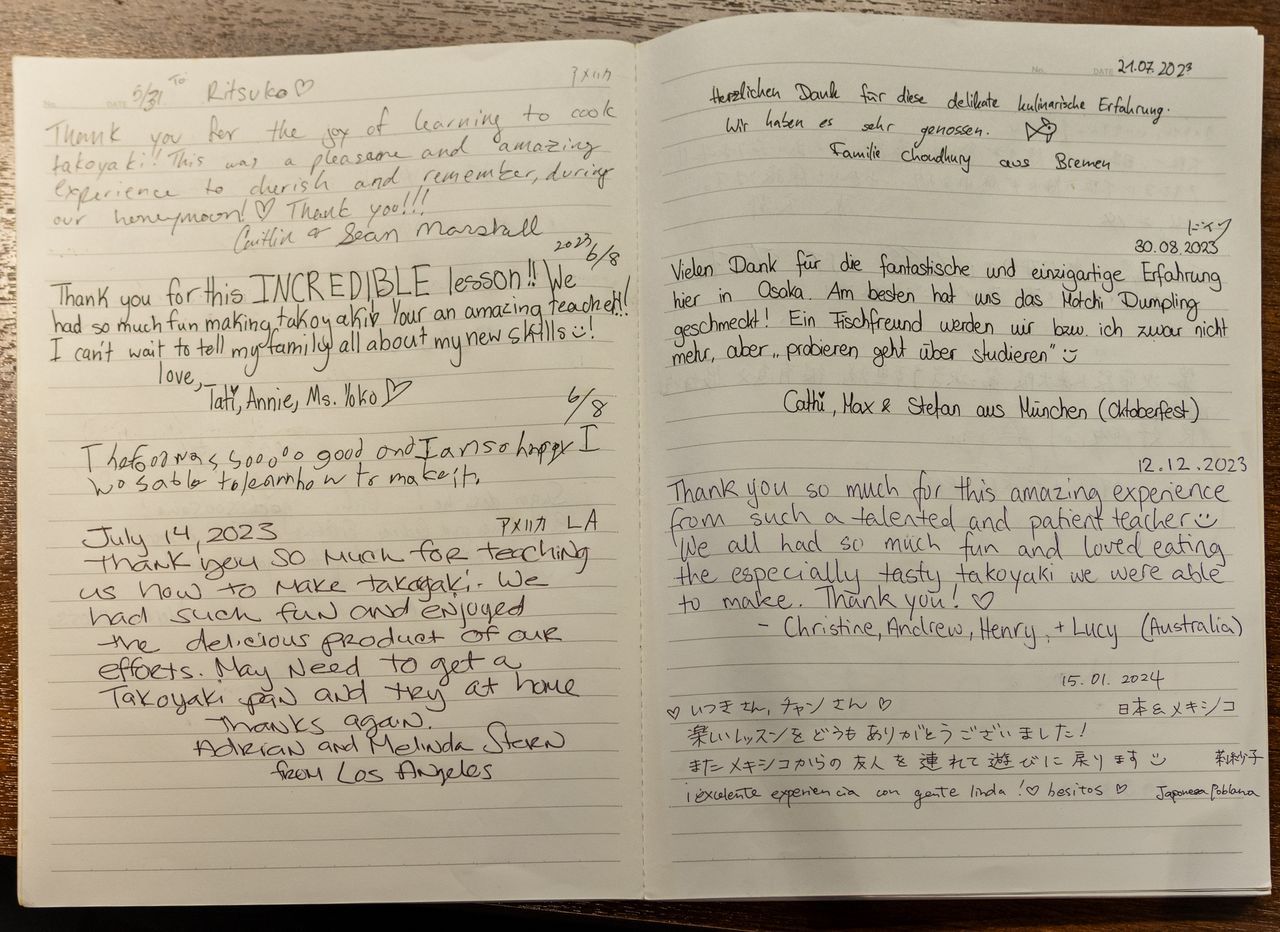 DATE 5/31 To Ritsuko♡ アメリカ
Thank you for the joy of learning to cook
takoyaki! This was a pleasure and amazing
experience to cherish and remember, during
our honeymoon! ♡ Thank you!!!
Caitlin & Sean Marshall
2023 6/8
Thank you for this INCREDIBLE lesson!! We
had so much fun making takoyaki! Your an amazing teacher!!
I can't wait to tell my family all about my new skills☺!
love,
Tati, Annie, Ms. Yoko ♡
6/8
The food was sooooo good and I am so happy I
was able to learn how to make it.
July 14, 2023 アメリカ LA
Thank you so much for teaching
us how to make takoyaki. We
had such fun and enjoyed
the delicious product of our
efforts. May need to get a
Takoyaki pan and try at home
Thanks again.
Adrian and Melinda Stern
from Los Angeles
No. DATE 21.07.2023
Herzlichen Dank für diese delikate kulinarische Erfahrung.
Wir haben es sehr genossen.
Familie Choudhury aus Bremen
ドイツ
30.08.2023
Vielen Dank für die fantastische und einzigartige Erfahrung
hier in Osaka. Am besten hat uns das Motchi Dumpling
geschmeckt! Ein Fischfreund werden wir bzw. ich zwar nicht
mehr, aber „probieren geht über studieren" ☺
Cathi, Max & Stefan aus München (Oktoberfest)
12.12.2023
Thank you so much for this amazing experience
from such a talented and patient teacher☺
We all had so much fun and loved eating
the especially tasty takoyaki we were able
to make. Thank you! ♡
- Christine, Andrew, Henry, + Lucy (Australia)
15.01.2024
♡ いつき さん, チャン さん ♡ 日本 & メキシコ
楽しいレッスンをどうもありがとうございました!
またメキシコからの友人を連れて遊びに戻ります☺
¡excelente experiencia con gente linda! ♡ besitos ♡ Japonesa Poblana